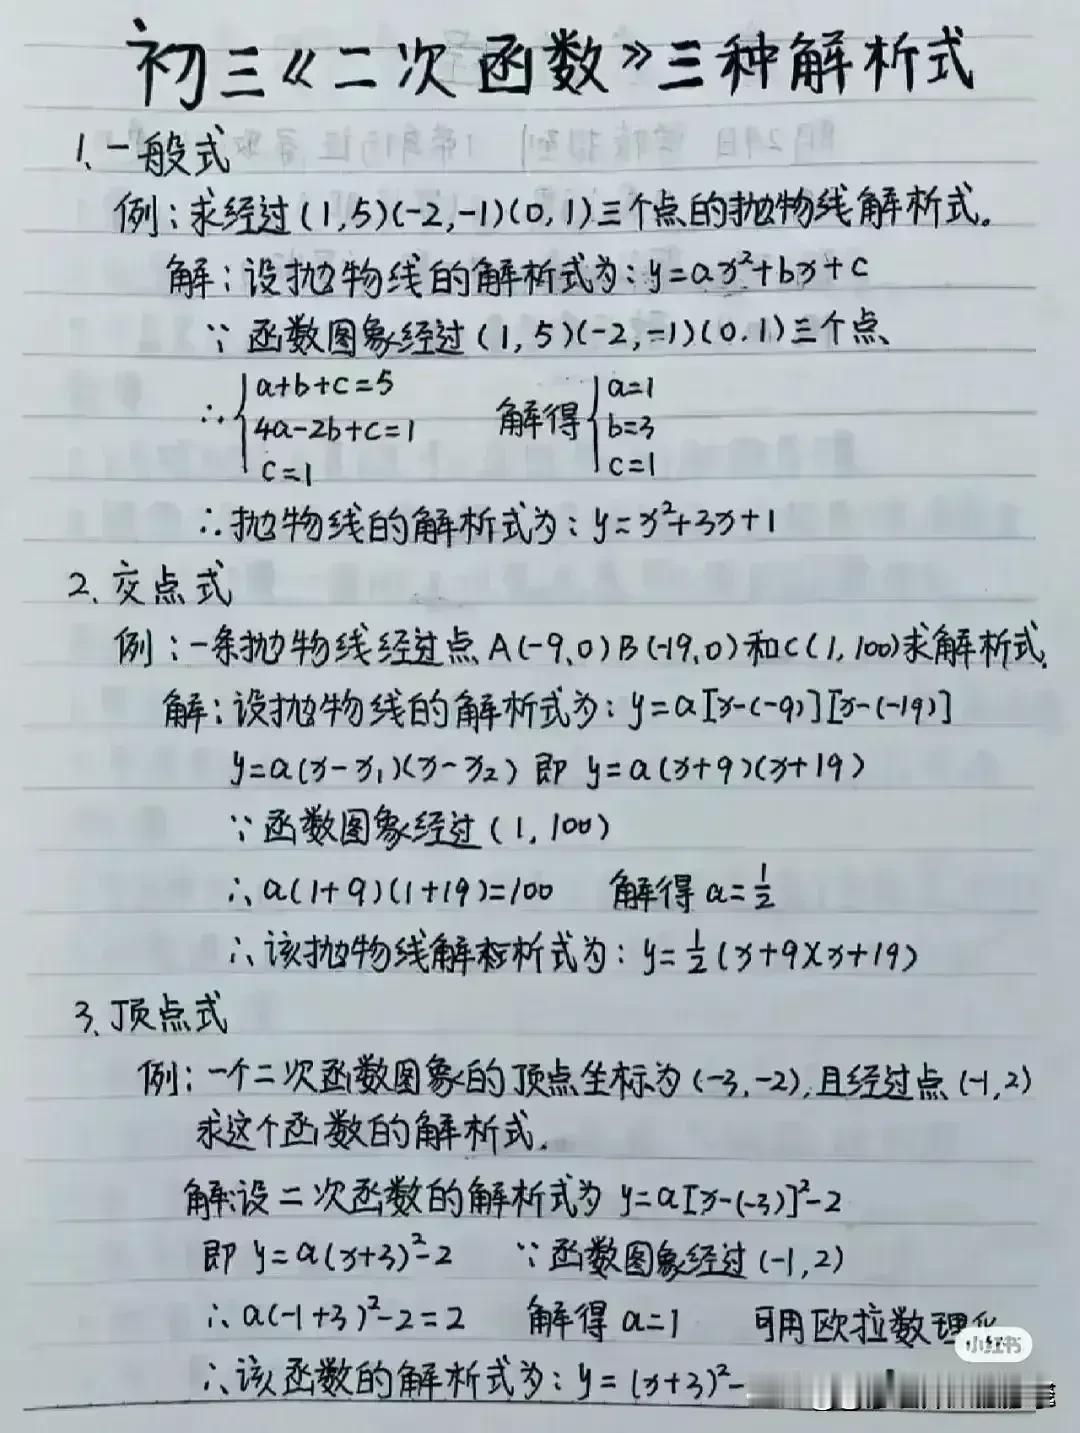 初三《二次函数》三种解析式
1、一般式
例:求经过(1,5)(-2,-1)(0,1)三个点的抛物线解析式。
解:设抛物线的解析式为:y=ax²+bx+c
∵函数图象经过(1,5)(-2,-1)(0.1)三个点、
∴{a+b+c=5 解得{a=1
4a-2b+c=1 b=3
c=1 c=1
∴抛物线的解析式为:y=x²+3x+1
2、交点式
例:一条抛物线经过点A(-9,0)B(-19,0)和C(1,100)求解析式.
解:设抛物线的解析式为:y=a[x-(-9)][x-(-19)]
y=a(x-x₁)(x-x₂) 即 y=a(x+9)(x+19)
∵函数图象经过(1,100)
∴a(1+9)(1+19)=100 解得a=1/2
∴该抛物线解析式为:y=1/2(x+9)(x+19)
3、顶点式
例:一个二次函数图象的顶点坐标为(-3,-2),且经过点(-1,2)
求这个函数的解析式.
解:设二次函数的解析式为 y=a[x-(-3)]²-2
即 y=a(x+3)²-2 ∵函数图象经过(-1,2)
∴a(-1+3)²-2=2 解得a=1 可用欧拉数理
小红书
∴该函数的解析式为:y=(x+3)²-